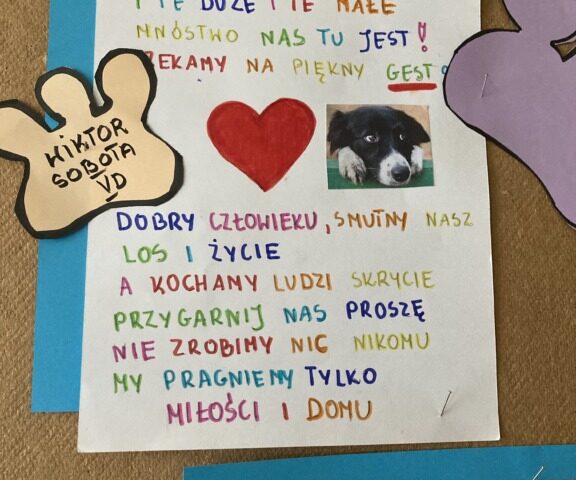 I TE DUŻE I TE MAŁE
MNÓSTWO NAS TU JEST!
CZEKAMY NA PIĘKNY GEST.
WIKTOR
SOBOTA
VD
DOBRY CZŁOWIEKU, SMUTNY NASZ
LOS I ŻYCIE
A KOCHAMY LUDZI SKRYCIE
PRZYGARNIJ NAS PROSZĘ
NIE ZROBIMY NIC NIKOMU
MY PRAGNIEMY TYLKO
MIŁOŚCI I DOMU